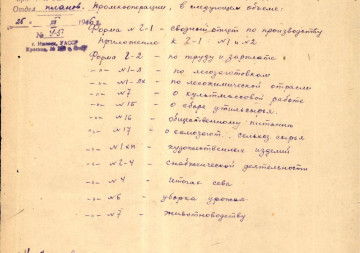 Отдел планов. Промкооперации, в следующем объеме:
25 III 1946 г.
№ 45
г. Нижнек, ТАССР
Форма № 2-1 - сводный отчет по производству
Приложение к 2-1 : №1 и №2
Форма 2-2 - по труду и зарплате
-"- №1-Л по лесозаготовкам
-"- №1-ЛХ по лесохимической отрасли
-"- №7 о культмассовой работе
-"- №15 о сборе утильсырья
-"- №16 общественному питанию
-"- №17 о самозагот. сельхоз сырья
-"- №1хп - художественных изделий
-"- №2-4 снабженческой деятельности
-"- №4 - Итоги сева
-"- №6 уборка урожая
-"- №7 животноводству